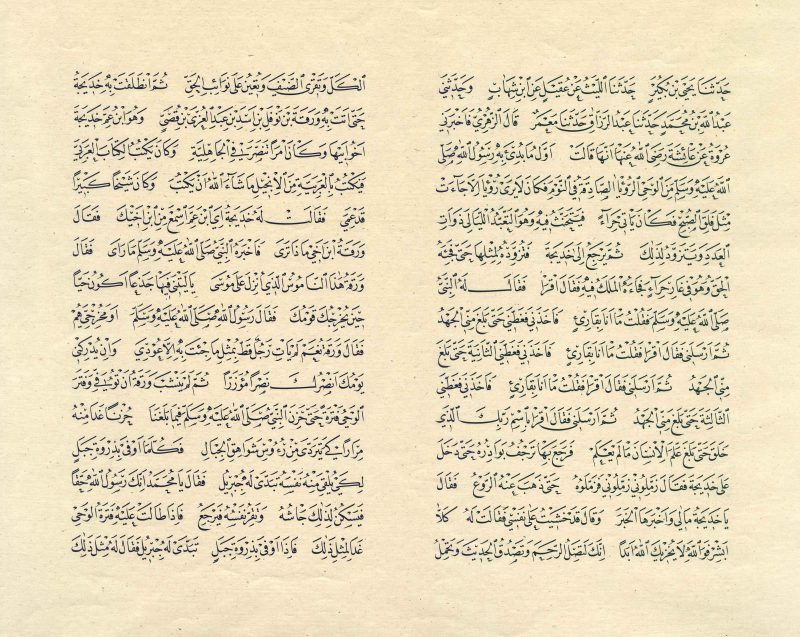 حدثنا يحيى بن بكير حدثنا الليث عن عقيل عن ابن شهاب وحدثني
عبد الله بن محمد حدثنا عبد الرزاق وحدثنا معمر قال الزهري فاخبرني
عروة عن عائشة رضي الله عنها انها قالت اول ما بدئ به رسول الله صلى
الله عليه وسلم من الوحي الرؤيا الصادقة في النوم فكان لا يرى رؤيا الا جاءت
مثل فلق الصبح فكان يأتي حراء فيتحنث فيه وهو التعبد الليالي ذوات
العدد ويتزود لذلك ثم يرجع الى خديجة فتزوده لمثلها حتى فجئه
الحق وهو في غار حراء فجاءه الملك فيه فقال اقرأ فقال له النبي
صلى الله عليه وسلم فقلت ما انا بقارئ فاخذني فغطني حتى بلغ مني الجهد
ثم ارسلني فقال اقرأ فقلت ما انا بقارئ فاخذني فغطني الثانية حتى بلغ
مني الجهد ثم ارسلني فقال اقرأ فقلت ما انا بقارئ فاخذني فغطني
الثالثة حتى بلغ مني الجهد ثم ارسلني فقال اقرأ باسم ربك الذي
خلق حتى بلغ علم الانسان ما لم يعلم فرجع بها ترجف بوادره حتى دخل
على خديجة فقال زملوني زملوني فزملوه حتى ذهب عنه الروع فقال
يا خديجة ما لي واخبرها الخبر وقال قد خشيت على نفسي فقالت له كلا
ابشر فوالله لا يخزيك الله ابدا انك لتصل الرحم وتصدق الحديث وتحمل
الكل وتقري الضيف وتعين على نوائب الحق ثم انطلقت به خديجة
حتى اتت به ورقة بن نوفل بن اسد بن عبد العزى بن قصي وهو ابن عم خديجة
اخو ابيها وكان امرأ تنصر في الجاهلية وكان يكتب الكتاب العربي
فيكتب بالعربية من الانجيل ما شاء الله ان يكتب وكان شيخا كبيرا
قد عمي فقالت له خديجة اي ابن عم اسمع من ابن اخيك فقال
ورقة ابن اخي ماذا ترى فاخبره النبي صلى الله عليه وسلم ما رأى فقال
ورقة هذا الناموس الذي انزل على موسى يا ليتني فيها جذعا اكون حيا
حين يخرجك قومك فقال رسول الله صلى الله عليه وسلم او مخرجي هم
فقال ورقة نعم لم يأت رجل قط بمثل ما جئت به الا عودي وان يدركني
يومك انصرك نصرا مؤزرا ثم لم ينشب ورقة ان توفي وفتر
الوحي فترة حتى حزن النبي صلى الله عليه وسلم فيما بلغنا حزنا غدا منه
مرارا كي يتردى من رءوس شواهق الجبال فكلما اوفى بذروة جبل
لكي يلقي منه نفسه تبدى له جبريل فقال يا محمد انك رسول الله حقا
فيسكن لذلك جأشه وتقر نفسه فيرجع فاذا طالت عليه فترة الوحي
غدا لمثل ذلك فاذا اوفى بذروة جبل تبدى له جبريل فقال له مثل ذلك